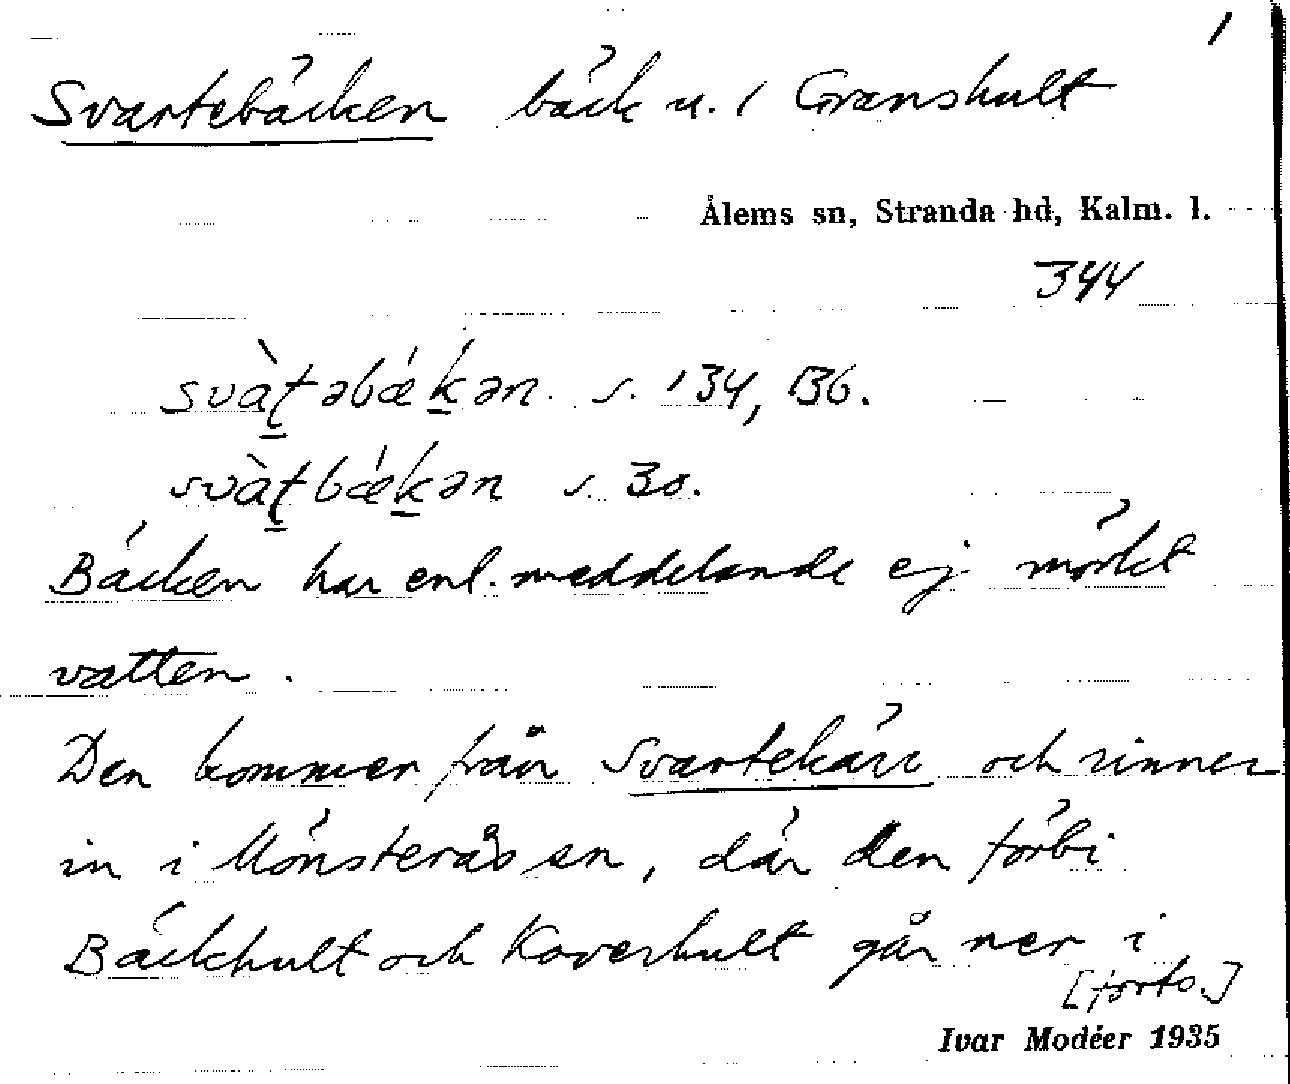 1
Svartebäcken bäck u. / Granshult
Ålems sn, Stranda hd, Kalm. l.
344
svàṯəbǽḵən. s. 134, 136.
svàṯbǽḵən s. 30.
Bäcken har enl. meddelande ej mörkt
vatten.
Den kommer från Svartekärr och rinner
in i Mönsteråsen, där den förbi
Bäckhult och Koverhult går ner i
[forts.]
Ivar Modéer 1935